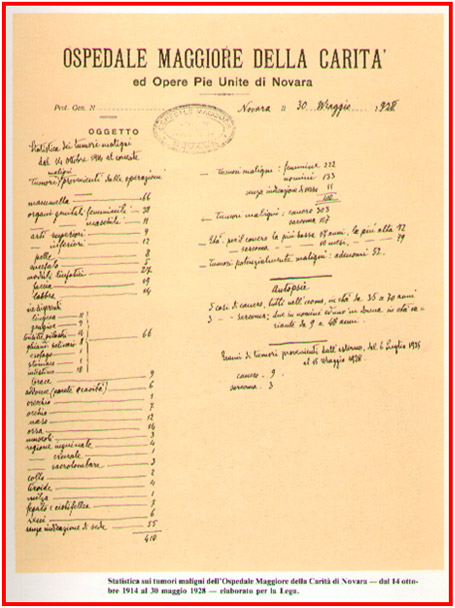 OSPEDALE MAGGIORE DELLA CARITA'
ed Opere Pie Unite di Novara
Prot. Gen. N
Novara li 30 Maggio 1928
OGGETTO
Statistica dei tumori maligni
dal 14 ottobre 1914 al corrente
maligni
Tumori provenienti dalle operazioni
mammella 66
organi genitali femminili 38
maschili 11
arti superiori 9
inferiori 12
pelle 8
27
faccia 19
labbra 14
vie digerenti
lingua 11
gengive 9
66
esofago 1
stomaco
intestino 18
torace 9
addome (parete e cavità) 6
orecchio 1
occhio 7
naso 12
ossa 14
muscoli 3
regione inguinale 4
crurale 1
sacrolombare 3
collo 2
tiroide 4
milza 1
fegato e cistifellea 3
6
senza indicazione di sede 55
410
Tumori maligni: femmine 222
uomini 133
senza indicazione di sesso 11
Tumori maligni: cancro 303
sarcoma 107
Età: per il cancro la più bassa 17 anni, la più alta 92
sarcoma 10 mesi, 79
Tumori potenzialmente maligni: adenomi 52.
Autopsie
5 casi di cancro, tutti nell'uomo, in età da 35 a 70 anni
3 sarcoma; due in uomini ed uno in donna in età va-
riante da 9 a 48 anni.
Esami di tumori provenienti dall'esterno, dal 6 Luglio 1925
al 15 Maggio 1928.
cancro. 9.
sarcoma. 3
Statistica sui tumori maligni dell'Ospedale Maggiore della Carità di Novara — dal 14 otto-
bre 1914 al 30 maggio 1928 — elaborato per la Lega.